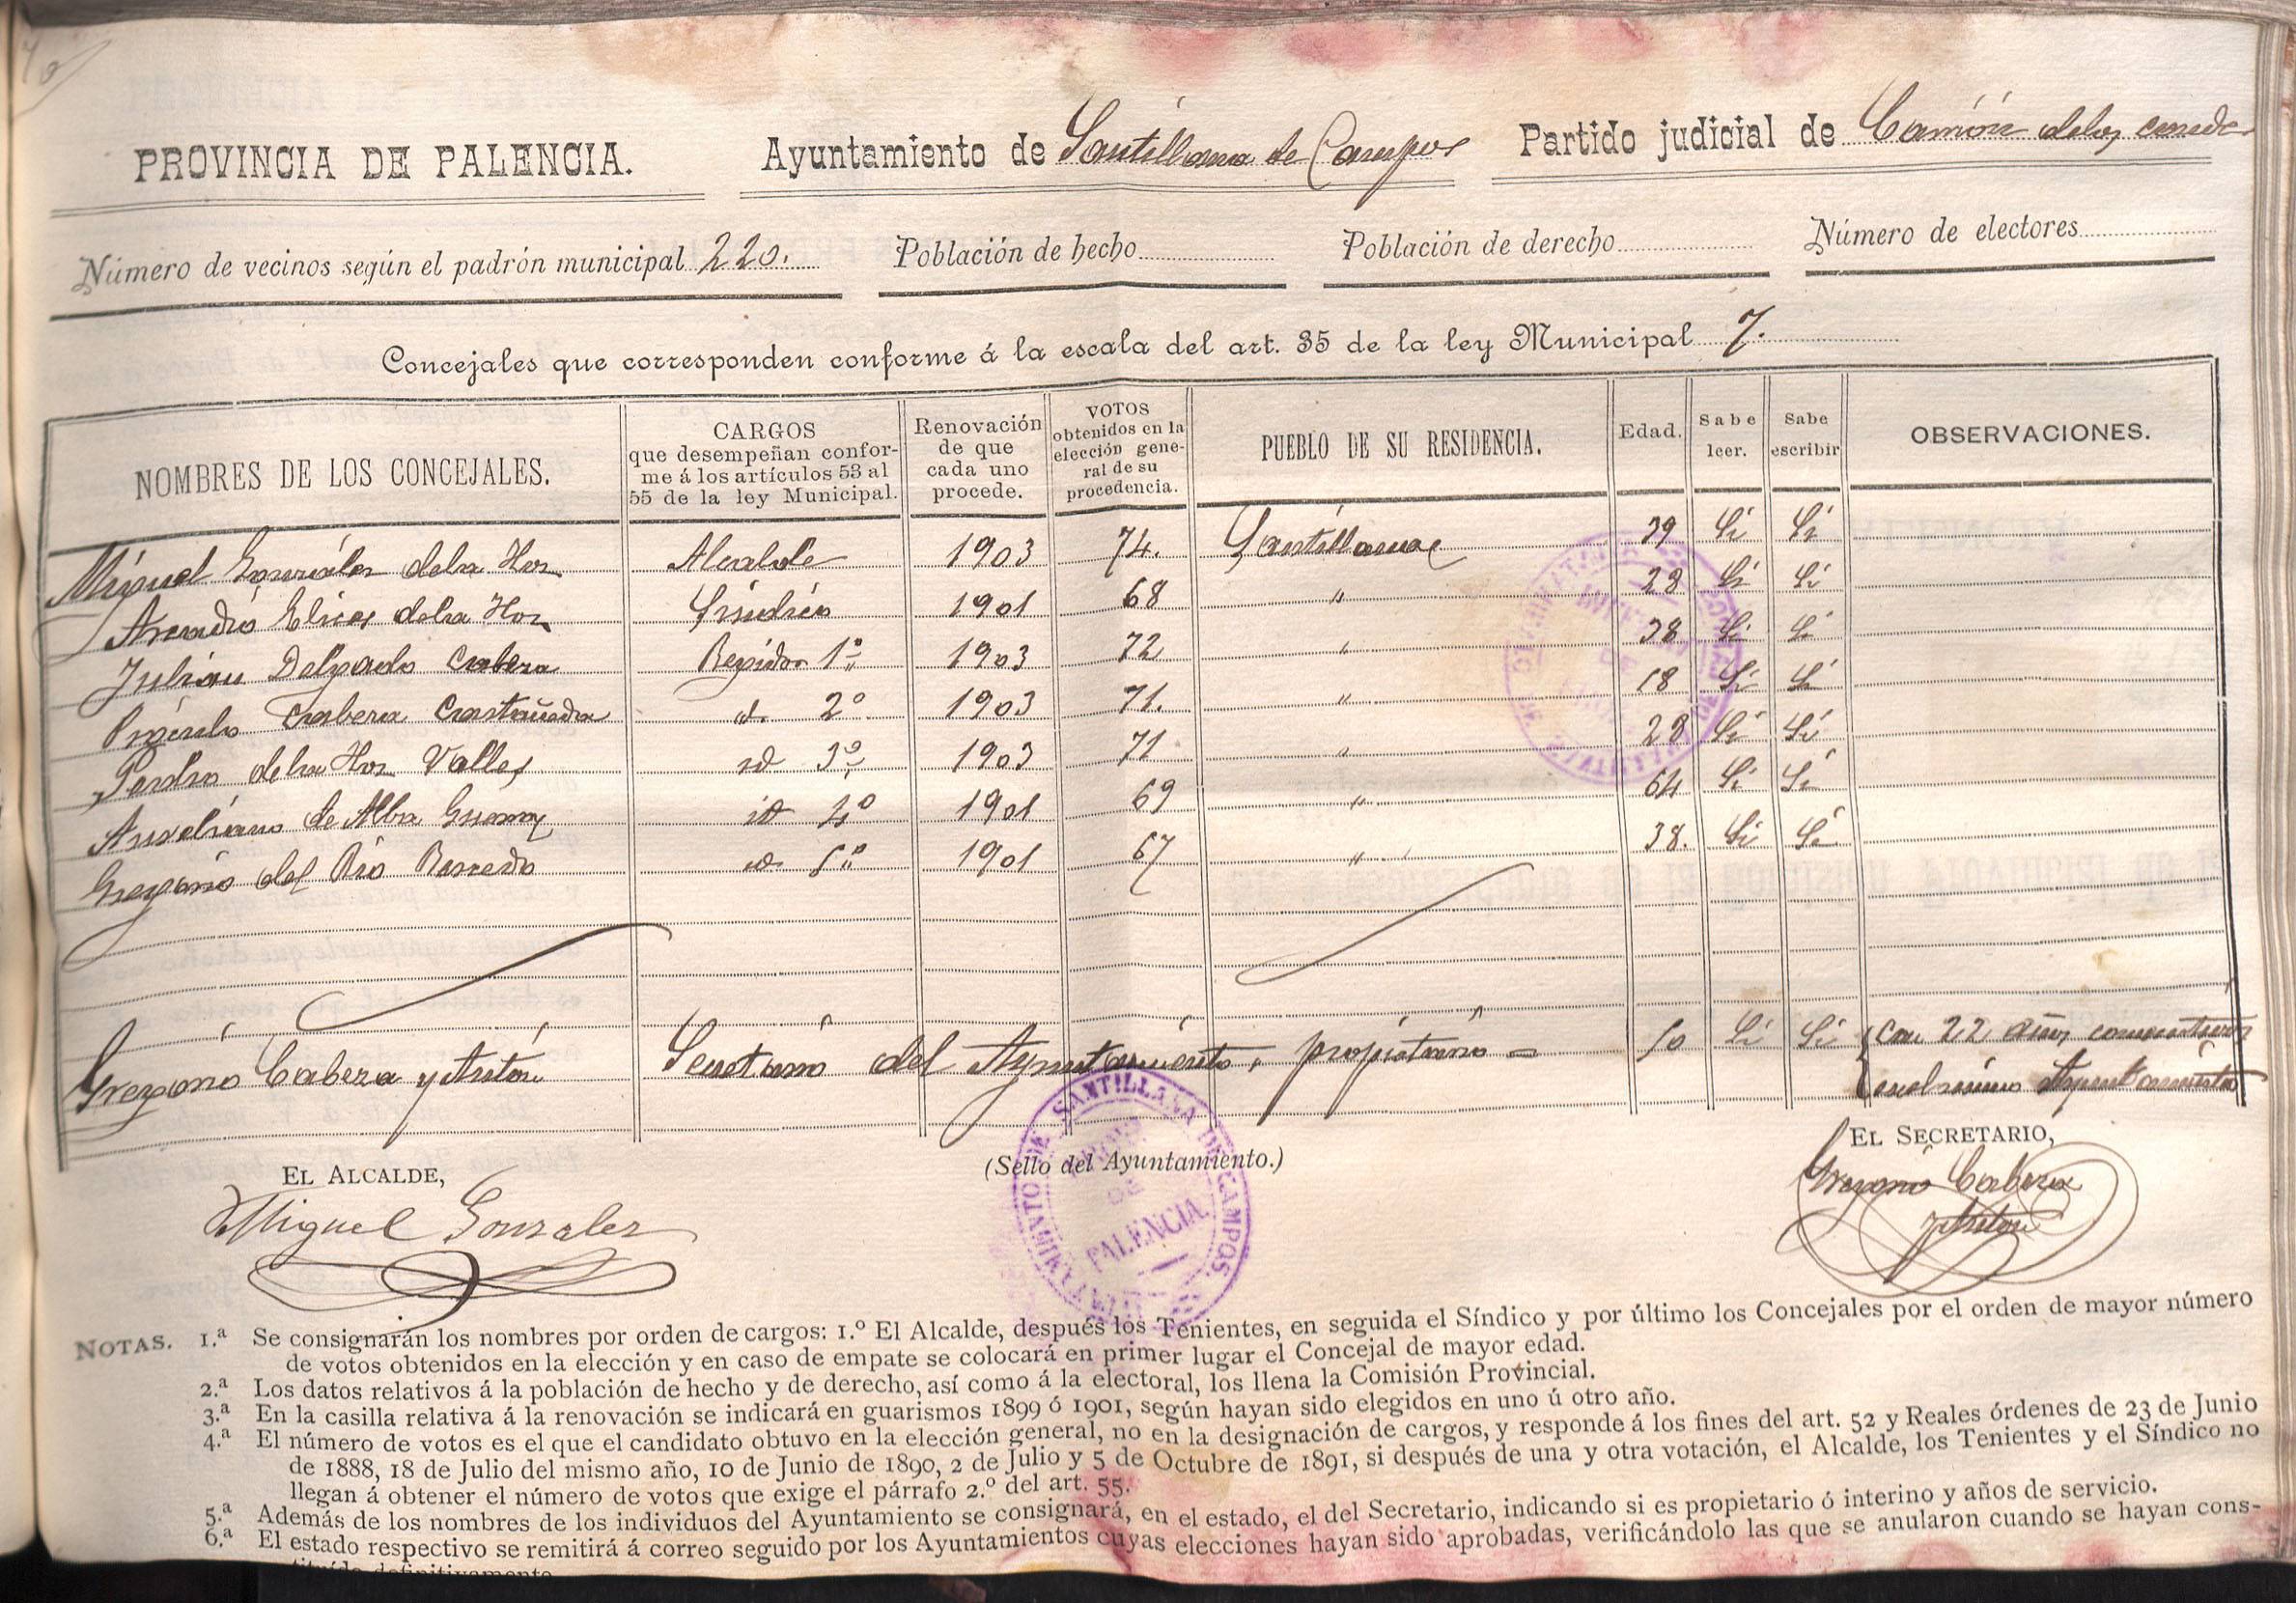 PROVINCIA DE PALENCIA. Ayuntamiento de Santillana de Campos Partido judicial de Carrión de los Condes
Número de vecinos según el padrón municipal 220. Población de hecho Población de derecho Número de electores
Concejales que corresponden conforme á la escala del art. 35 de la ley Municipal 7.
NOMBRES DE LOS CONCEJALES. CARGOS que desempeñan conforme á los artículos 53 al 55 de la ley Municipal. Renovación de que cada uno procede. VOTOS obtenidos en la elección general de su procedencia. PUEBLO DE SU RESIDENCIA. Edad. Sabe leer. Sabe escribir OBSERVACIONES.
Miguel Gonzáles dela Hoz Alcalde 1903 74. Santillana 39 Si Si
dela Hoz Sindico 1901 68 " 28 Si Si
Julian Delgado Cabeza Regidor 1º 1903 72 " 38 Si Si
Cabeza Castañeda id. 2º 1903 71. " 18 Si Si
Pedro dela Hoz Valles id 3º 1903 71 " 28 Si Si
Aureliano de Alba id 4º 1901 69 " 64 Si Si
Gregorio del Rio id 5º 1901 67 " 38. Si Si
Gregorio Cabeza y Antón Secretario del Ayuntamiento, propietario = 50 Si Si Con 22 años
Ayuntamiento
EL ALCALDE, (Sello del Ayuntamiento.) EL SECRETARIO,
Miguel Gonzales Gregorio Cabeza
y Antón
AYUNTAMIENTO DE SANTILLANA DE CAMPOS.
DE
PALENCIA.
NOTAS. 1.ª Se consignarán los nombres por orden de cargos: 1.º El Alcalde, después los Tenientes, en seguida el Síndico y por último los Concejales por el orden de mayor número
de votos obtenidos en la elección y en caso de empate se colocará en primer lugar el Concejal de mayor edad.
2.ª Los datos relativos á la población de hecho y de derecho, así como á la electoral, los llena la Comisión Provincial.
3.ª En la casilla relativa á la renovación se indicará en guarismos 1899 ó 1901, según hayan sido elegidos en uno ú otro año.
4.ª El número de votos es el que el candidato obtuvo en la elección general, no en la designación de cargos, y responde á los fines del art. 52 y Reales órdenes de 23 de Junio
de 1888, 18 de Julio del mismo año, 10 de Junio de 1890, 2 de Julio y 5 de Octubre de 1891, si después de una y otra votación, el Alcalde, los Tenientes y el Síndico no
llegan á obtener el número de votos que exige el párrafo 2.º del art. 55.
5.ª Además de los nombres de los individuos del Ayuntamiento se consignará, en el estado, el del Secretario, indicando si es propietario ó interino y años de servicio.
6.ª El estado respectivo se remitirá á correo seguido por los Ayuntamientos cuyas elecciones hayan sido aprobadas, verificándolo las que se anularon cuando se hayan cons-